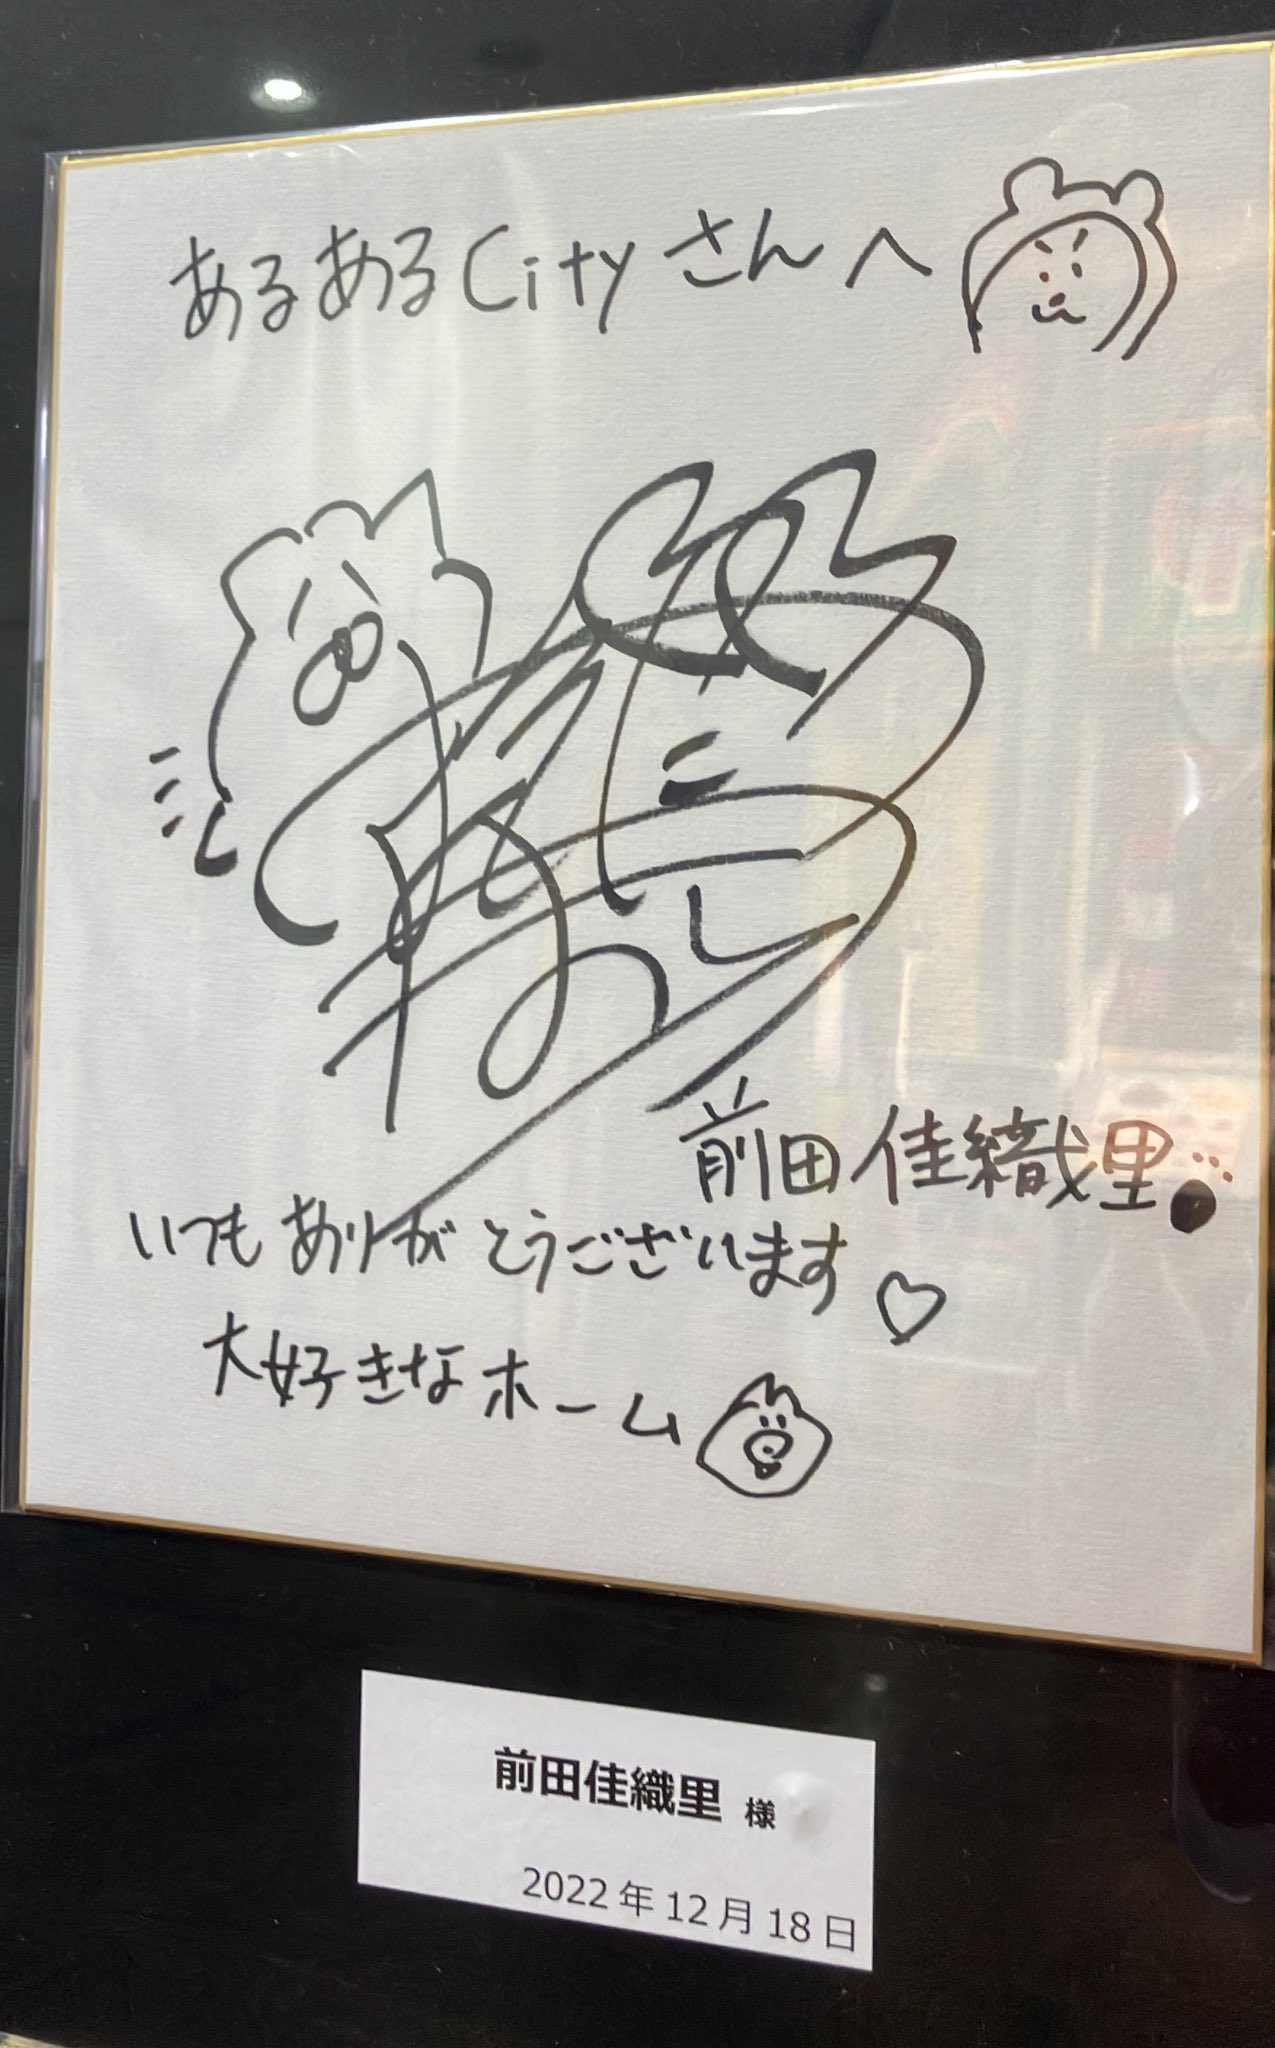 あるあるCityさんへ
前田佳織里
いつもありがとうございます♡
大好きなホーム
前田佳織里 様
2022年12月18日